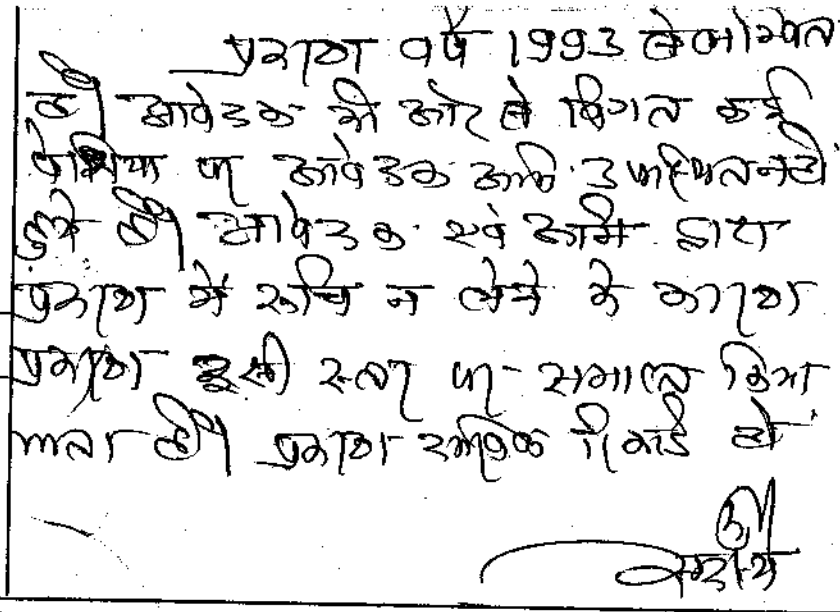 प्रकरण वर्ष 1993 से लम्बित
है। आवेदक की ओर से विगत कई
पेशियों पर आवेदक आदि उपस्थित नहीं
हुये है। आवेदक एवं अभि. द्वारा
प्रकरण में रूचि न लेने के कारण
प्रकरण इसी स्तर पर समाप्त किया
जाता है। प्रकरण दाखिल रिकार्ड हो
सदस्य